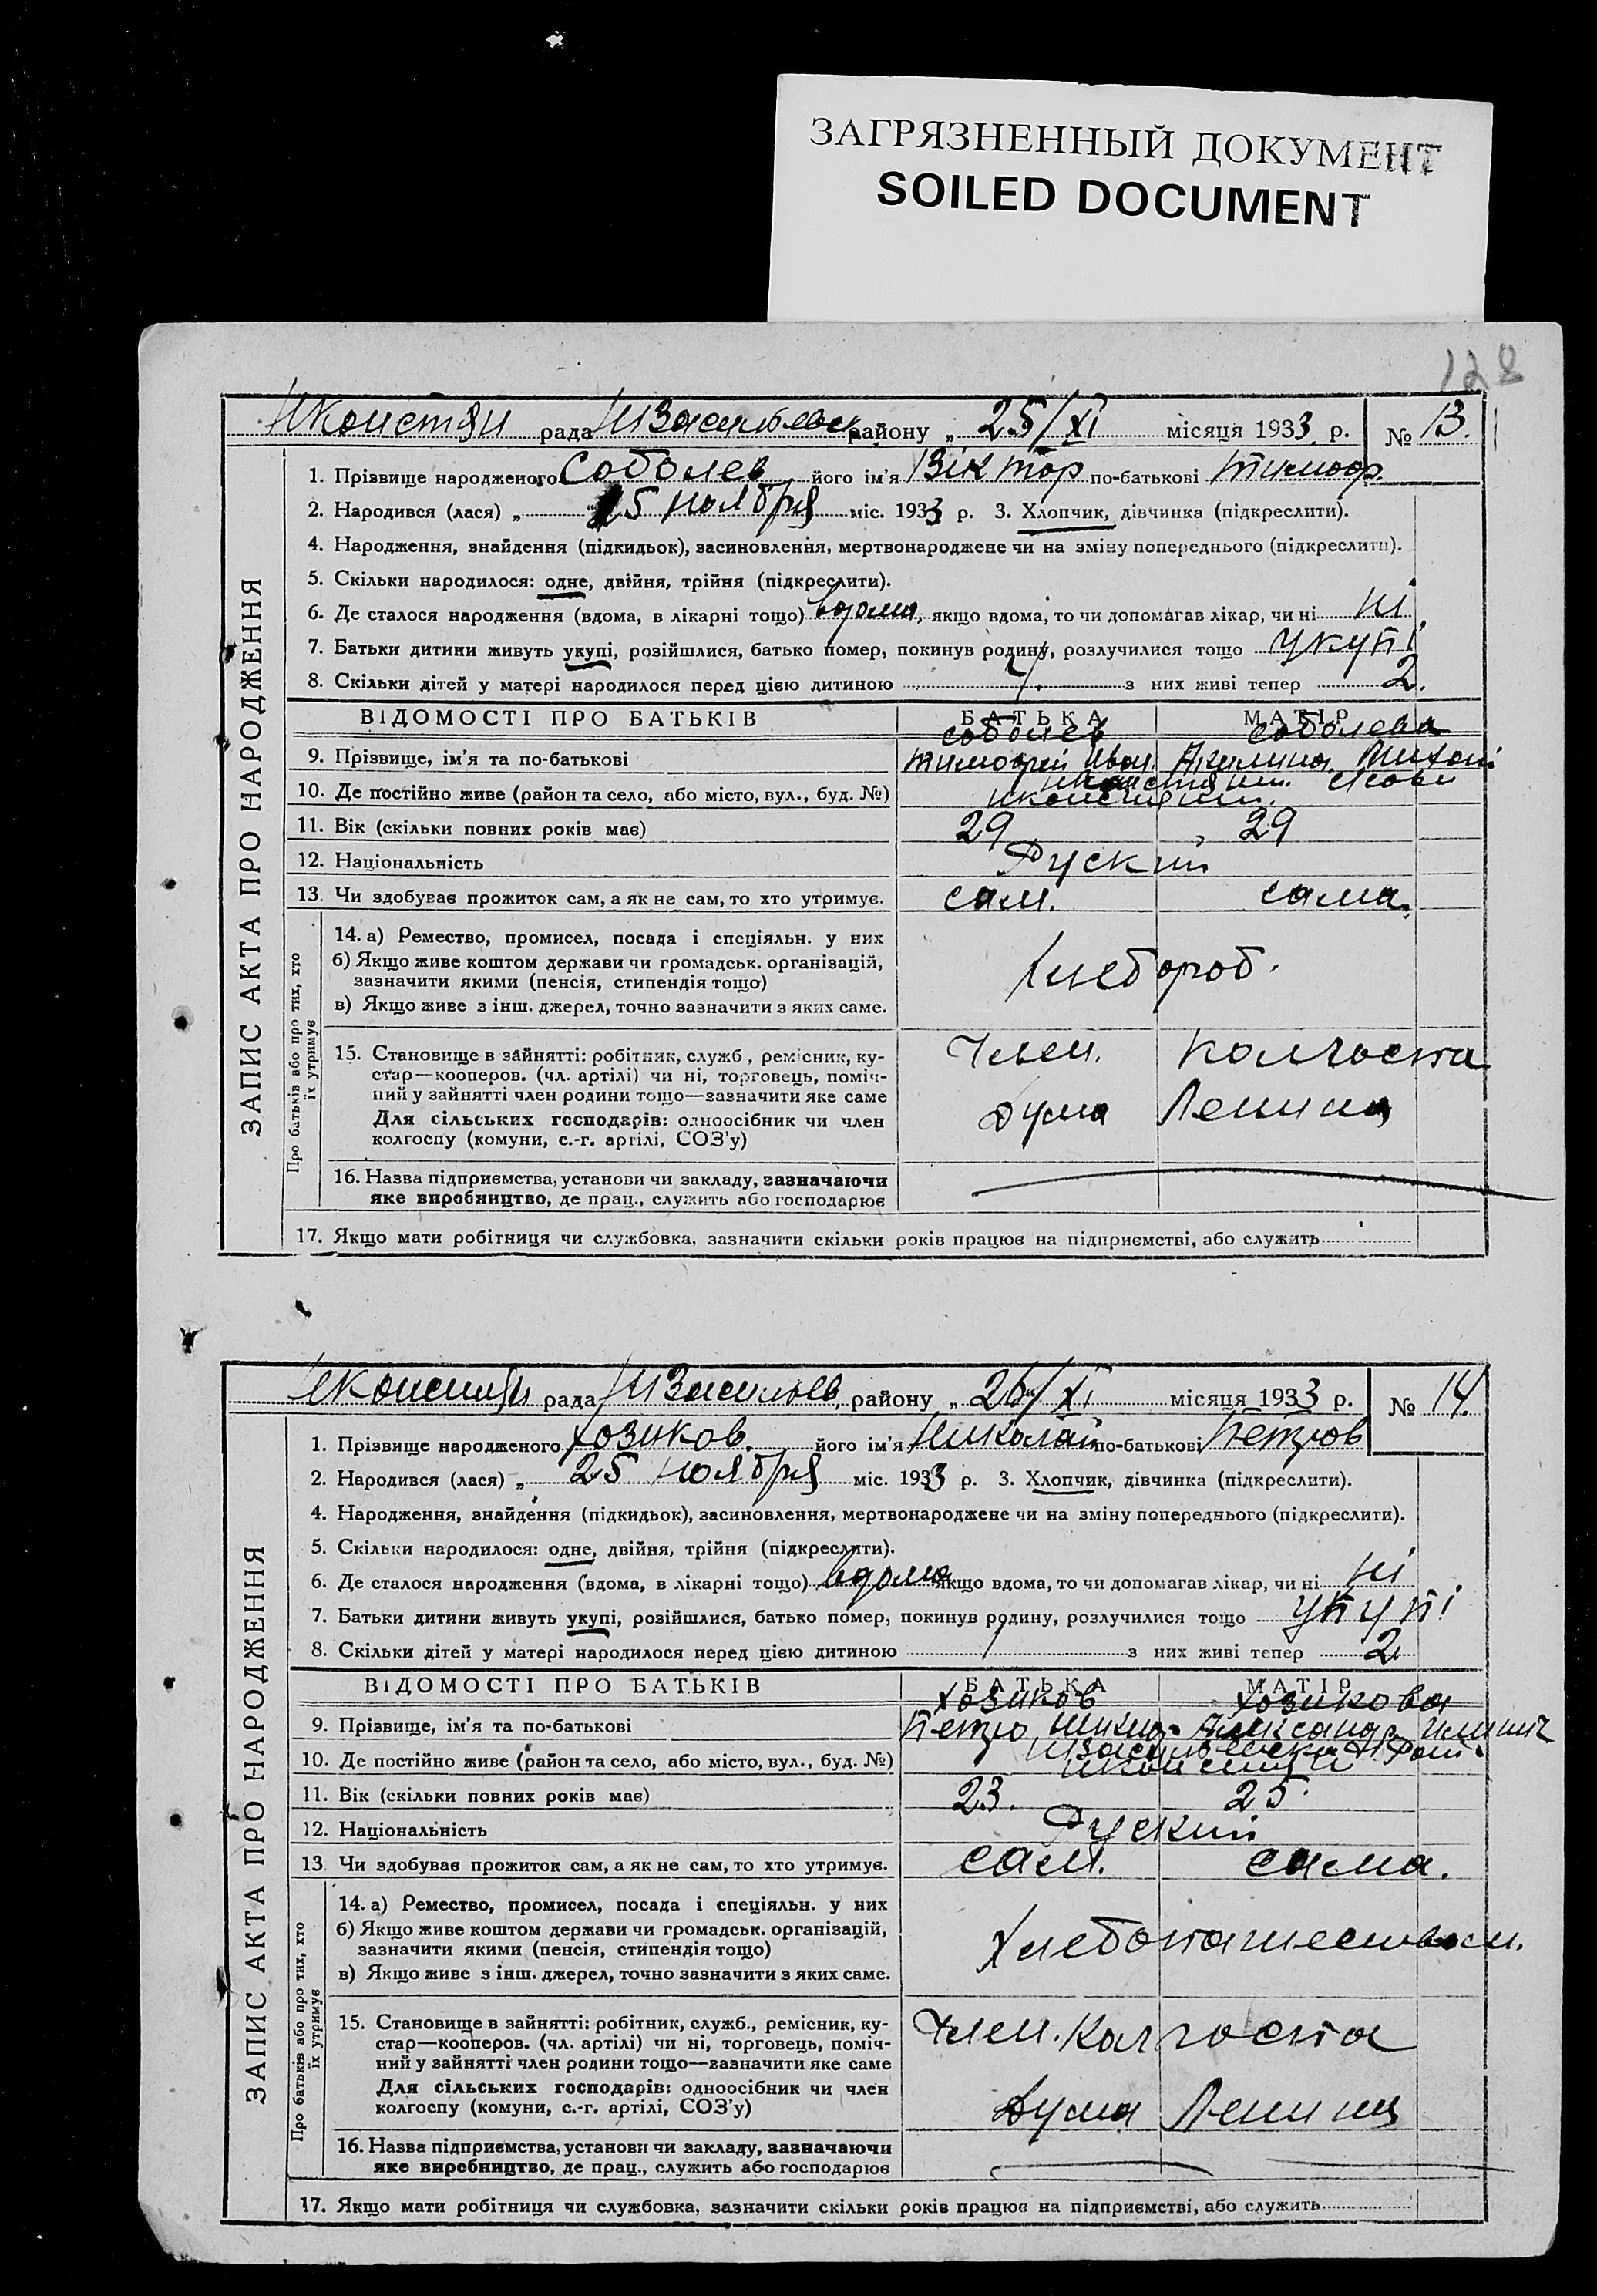 ЗАГРЯЗНЕННЫЙ ДОКУМЕНТ
SOILED DOCUMENT
128
рада району „ 25/XI місяця 1933 р. № 13.
1. Прізвище народженого Соболев його ім'я Віктор по-батькові Тимофр.
2. Народився (лася) „ 15 ноября міс. 1933 р. 3. Хлопчик, дівчинка (підкреслити).
4. Народження, знайдення (підкидьок), засиновлення, мертвонароджене чи на зміну попереднього (підкреслити).
5. Скільки народилося: одне, двійня, трійня (підкреслити).
6. Де сталося народження (вдома, в лікарні тощо) вдома, якщо вдома, то чи допомагав лікар, чи ні ні
7. Батьки дитини живуть укупі, розійшлися, батько помер, покинув родину, розлучилися тощо укупі
8. Скільки дітей у матері народилося перед цією дитиною з них живі тепер 2.
ВІДОМОСТІ ПРО БАТЬКІВ БАТЬКА МАТІР
Соболев Соболева
9. Прізвище, ім'я та по-батькові Тимофей Иван. Акулина
10. Де постійно живе (район та село, або місто, вул., буд. №)
11. Вік (скільки повних років має) 29 29
12. Національність Руский
13. Чи здобував прожиток сам, а як не сам, то хто утримує. сам. сама.
14. а) Ремество, промисел, посада і спеціяльн. у них
б) Якщо живе коштом держави чи громадськ. організацій,
зазначити якими (пенсія, стипендія тощо) Хлебороб.
в) Якщо живе з інш. джерел, точно зазначити з яких саме.
15. Становище в зайнятті: робітник, служб., ремісник, ку-
стар—кооперов. (чл. артілі) чи ні, торговець, поміч- Член. Колгоспа
ний у зайнятті член родини тощо—зазначити яке саме
Для сільських господарів: одноосібник чи член Дума Ленина
колгоспу (комуни, с.-г. артілі, СОЗ'у)
16. Назва підприємства, установи чи закладу, зазначаючи
яке виробництво, де прац., служить або господарює
17. Якщо мати робітниця чи службовка, зазначити скільки років працює на підприємстві, або служить
ЗАПИС АКТА ПРО НАРОДЖЕННЯ
Про батьків або про тих, хто
їх утримує
рада району „ 26/XI місяця 1933 р. № 14.
1. Прізвище народженого Хозиков. його ім'я Николай по-батькові Петров
2. Народився (лася) „ 25 ноября міс. 1933 р. 3. Хлопчик, дівчинка (підкреслити).
4. Народження, знайдення (підкидьок), засиновлення, мертвонароджене чи на зміну попереднього (підкреслити).
5. Скільки народилося: одне, двійня, трійня (підкреслити).
6. Де сталося народження (вдома, в лікарні тощо) вдома якщо вдома, то чи допомагав лікар, чи ні ні
7. Батьки дитини живуть укупі, розійшлися, батько помер, покинув родину, розлучилися тощо укупі
8. Скільки дітей у матері народилося перед цією дитиною 1 з них живі тепер 2
ВІДОМОСТІ ПРО БАТЬКІВ БАТЬКА МАТІР
Хозиков Хозикова
9. Прізвище, ім'я та по-батькові Петро Александр
10. Де постійно живе (район та село, або місто, вул., буд. №)
11. Вік (скільки повних років має) 23. 25.
12. Національність Руский
13. Чи здобував прожиток сам, а як не сам, то хто утримує. сам. сама.
14. а) Ремество, промисел, посада і спеціяльн. у них
б) Якщо живе коштом держави чи громадськ. організацій,
зазначити якими (пенсія, стипендія тощо)
в) Якщо живе з інш. джерел, точно зазначити з яких саме.
15. Становище в зайнятті: робітник, служб., ремісник, ку- Член. Колгоспа
стар—кооперов. (чл. артілі) чи ні, торговець, поміч-
ний у зайнятті член родини тощо—зазначити яке саме
Для сільських господарів: одноосібник чи член
колгоспу (комуни, с.-г. артілі, СОЗ'у) Дума Ленина
16. Назва підприємства, установи чи закладу, зазначаючи
яке виробництво, де прац., служить або господарює
17. Якщо мати робітниця чи службовка, зазначити скільки років працює на підприємстві, або служить
ЗАПИС АКТА ПРО НАРОДЖЕННЯ
Про батьків або про тих, хто
їх утримує